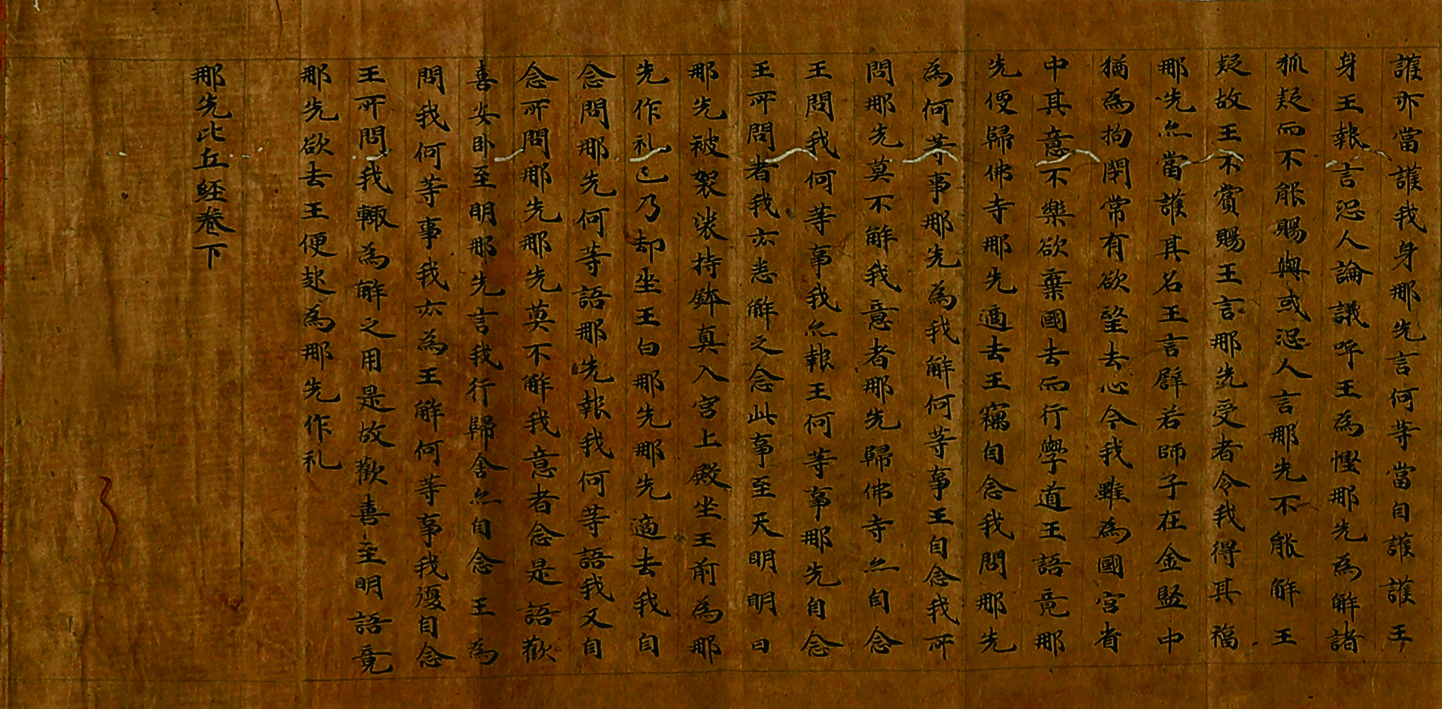 護亦當護我身那先言何等當自護護王
身王報言恐人論議呼王為慳那先為解諸
狐疑而不能賜與或恐人言那先不能解王
疑故王不賞賜王言那先受者令我得其福
那先亦當護其名王言譬若師子在金檻中
猶為拘閉常有欲望去心今我雖為國宮省
中其意不樂欲棄國去而行學道王語竟那
先便歸佛寺那先適去王竊自念我問那先
為何等事那先為我解何等事王自念我所
問那先莫不解我意者那先歸佛寺亦自念
王問我何等事我亦報王何等事那先自念
王所問者我亦悉解之念此事至天明明日
那先被袈裟持鉢真入宮上殿坐王前為那
先作礼已乃却坐王白那先那先適去我自
念問那先何等語那先報我何等語我又自
念所問那先那先莫不解我意者念是語歡
喜安卧至明那先言我行歸舍亦自念王為
問我何等事我亦為王解何等事我復自念
王所問我輙為解之用是故歡喜至明語竟
那先欲去王便起為那先作礼
那先比丘經卷下